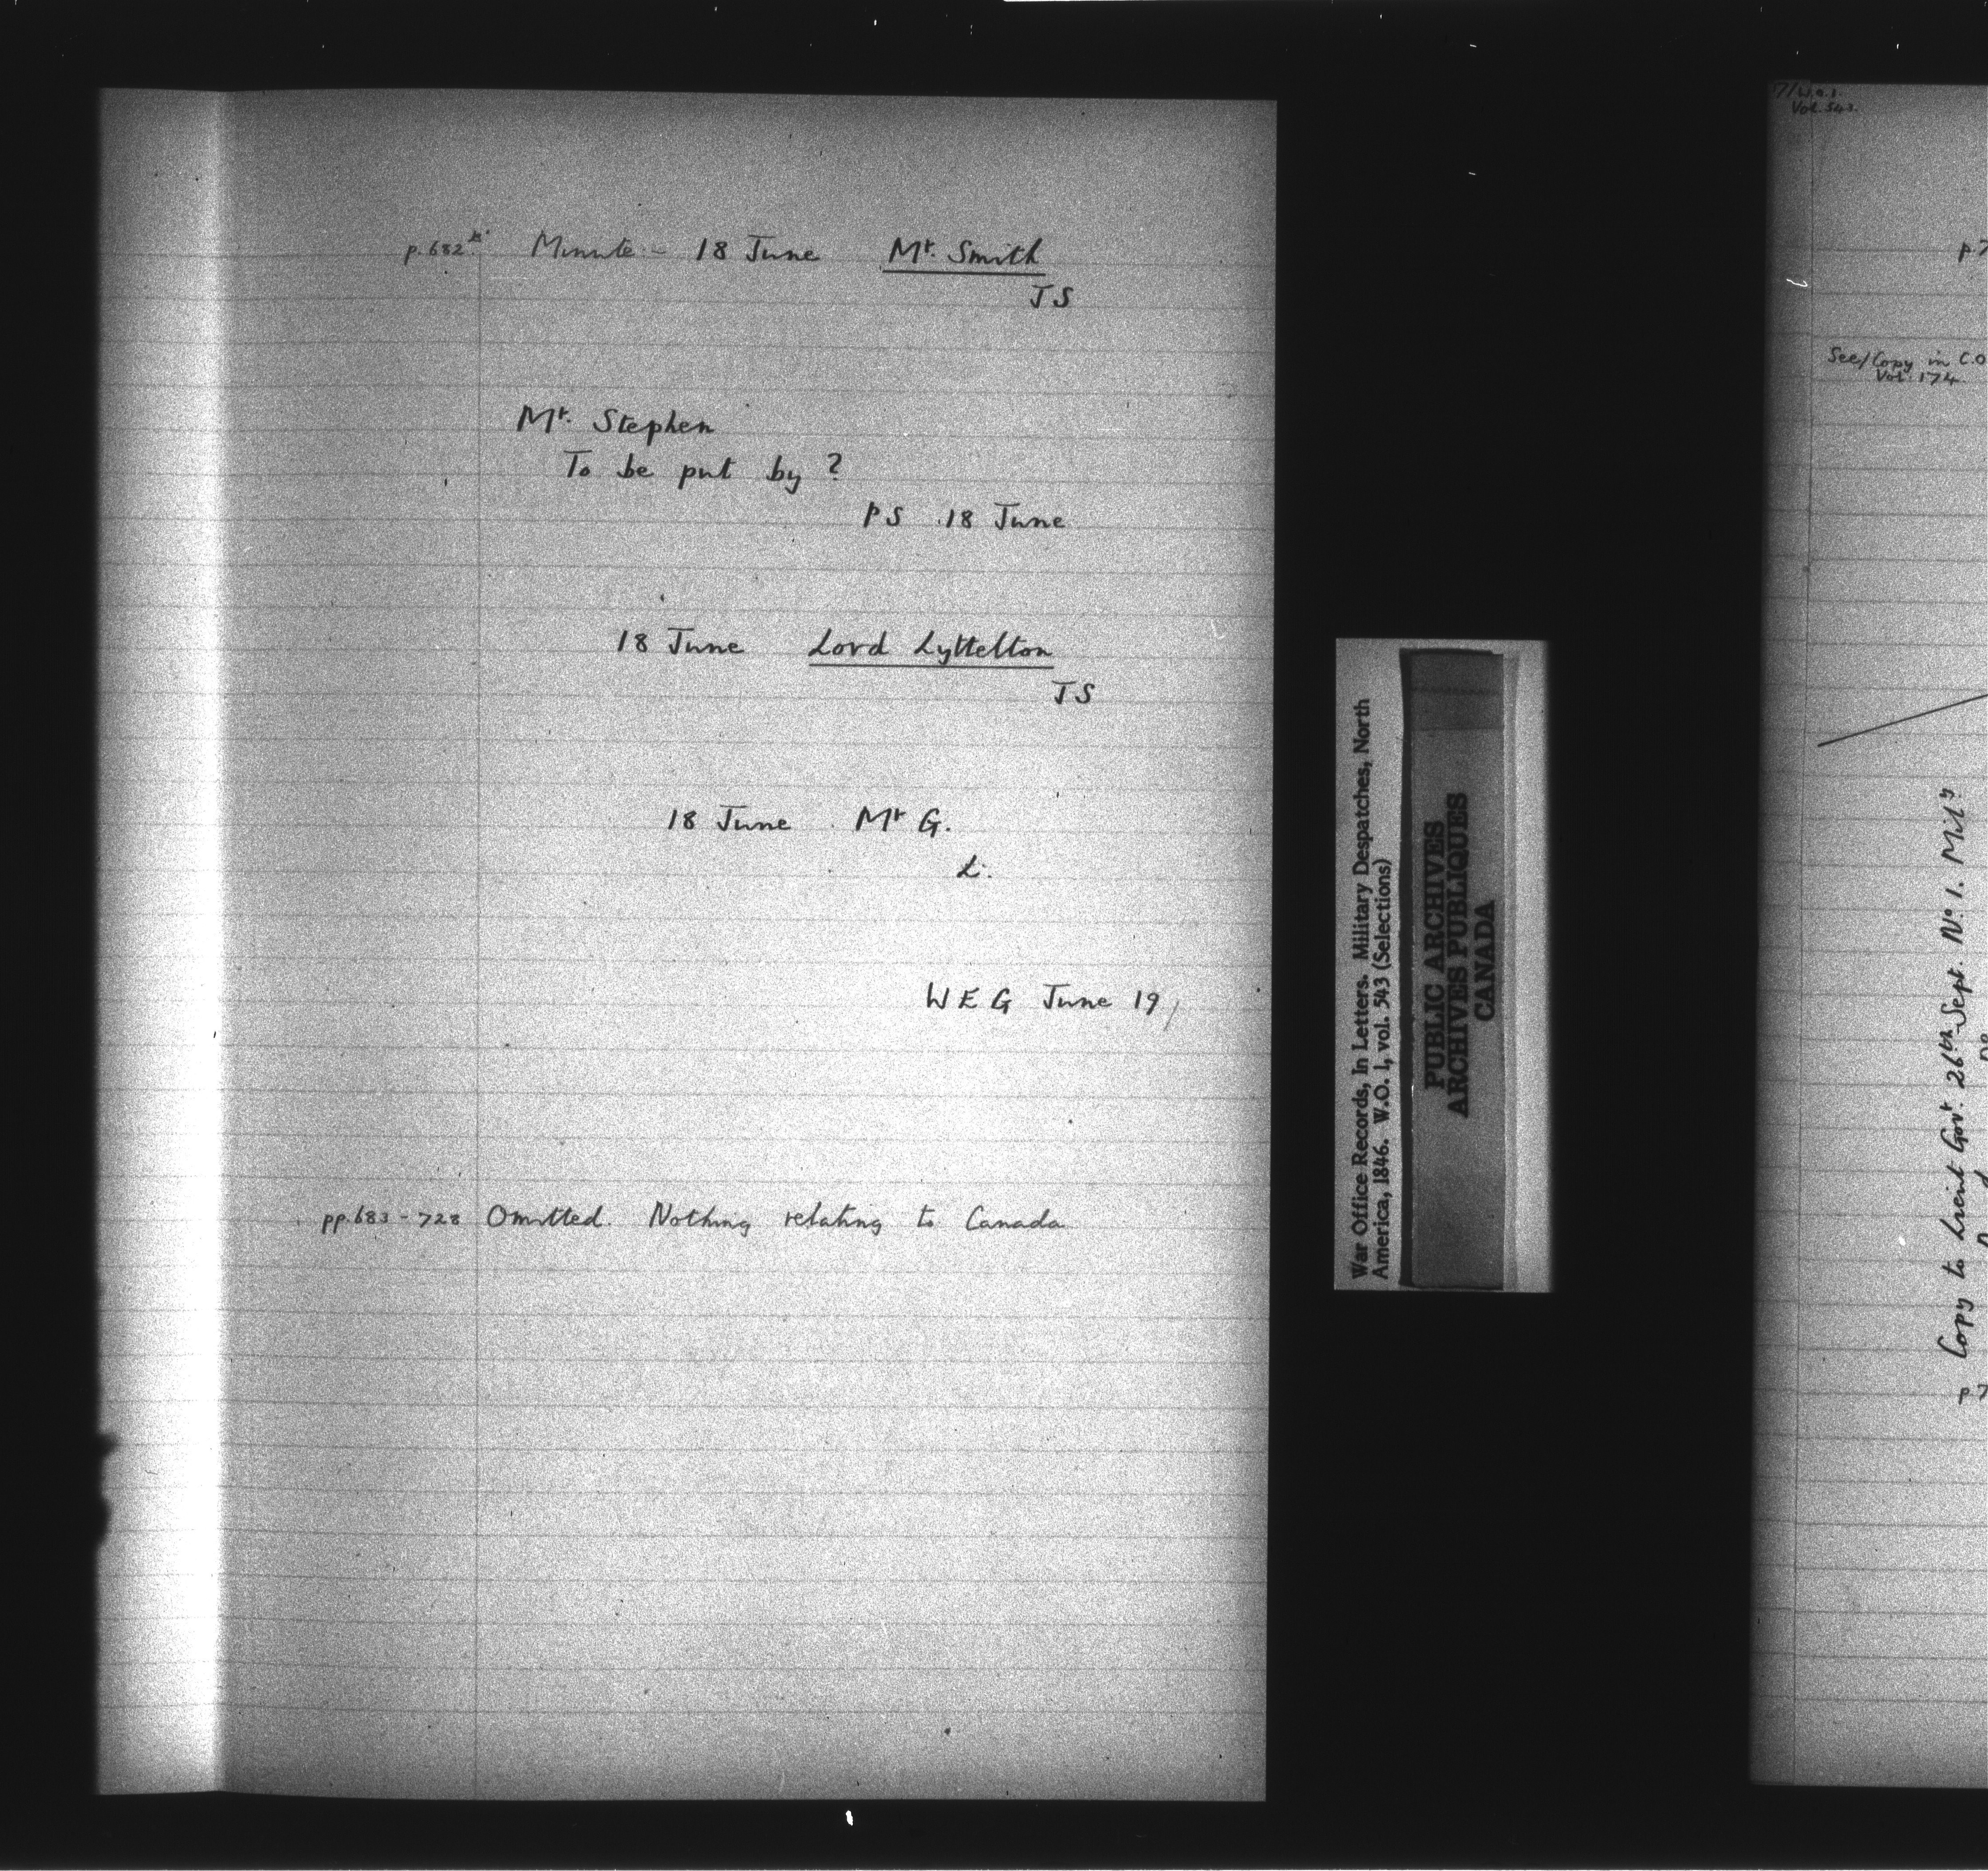 p.682 Minute - 18 June Mr. Smith
JS
Mr. Stephen
To be put by?
PS 18 June
18 June Lord Lyttelton
JS
18 June Mr G.
L.
W E G June 19/
pp. 683 - 728 Omitted. Nothing relating to Canada
War Office Records, In Letters. Military Despatches, North
America, 1846. W.O. 1, vol. 543 (Selections)
PUBLIC ARCHIVES
ARCHIVES PUBLIQUES
CANADA
W.O.1.
Vol. 543.
p.7
See/Copy in C.O
Vol. 174
Copy to Lieut Govr. 26th Sept. No 1. Mily
p 7